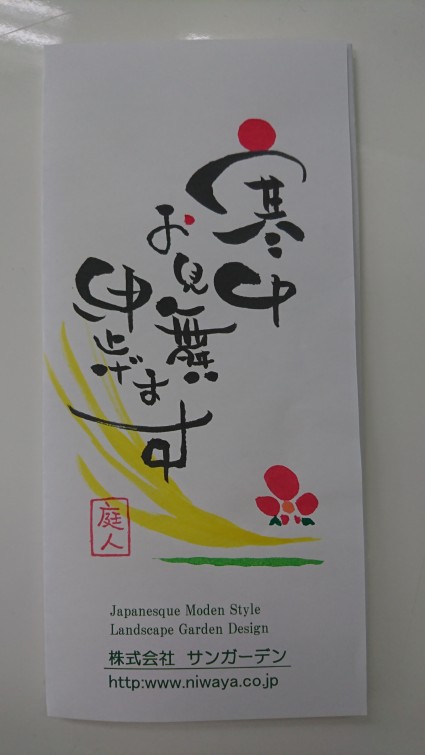 寒中
お見舞
申上げます
庭人
Japanesque Moden Style
Landscape Garden Design
株式会社 サンガーデン
http:www.niwaya.co.jp